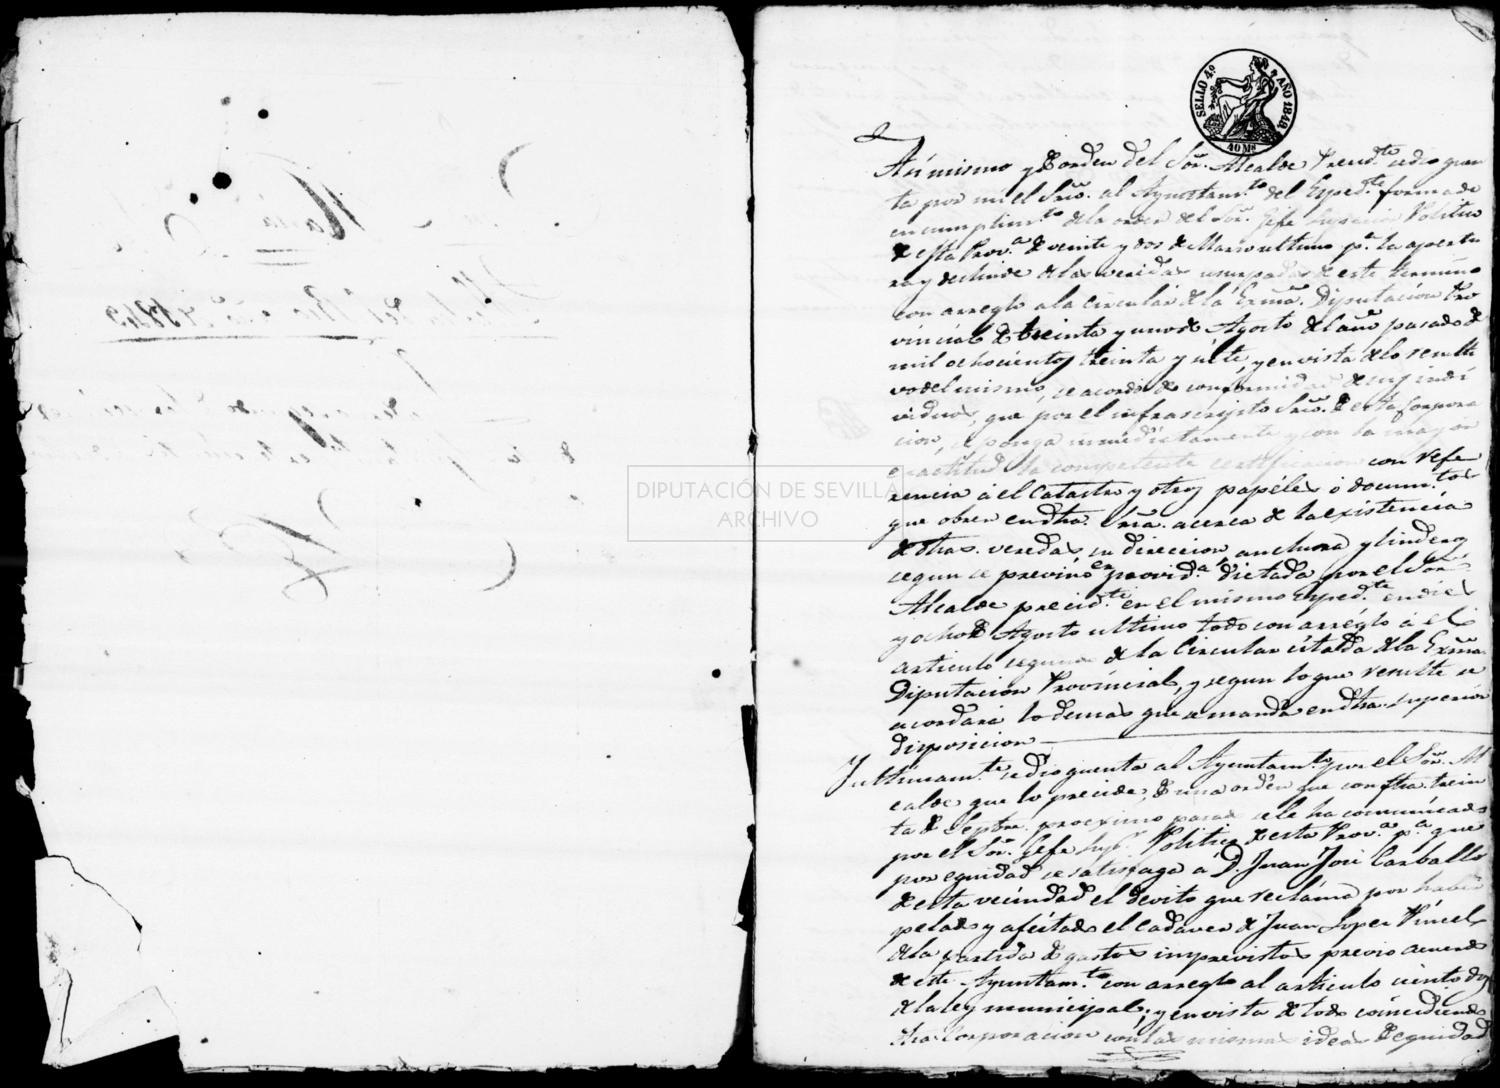 SELLO 4º AÑO 1848
40 Ms
Asi mismo y de orden del Sor. Alcalde Presidte. se dio quen
ta por mi el Srio. al Ayuntamto. del Expedte. formado
en cumplimto. de la orden del Sor. Gefe Superior Politico
de esta Prova. de veinte y dos de Marzo ultimo pa. la apertu
ra y deslinde de las veredas usurpadas de este termino
con arreglo a la circular de la Exma. Diputacion Pro
vincial de treinta y uno de Agosto del año pasado de
mil ochocientos treinta y siete, y en vista de lo resulti
vo del mismo, se acordó de conformidad de sus indi
viduos, que por el infrascripto Srio. de esta Corpora
cion, se ponga inmediatamente y con la mayor
exactitud la competente certificacion con refe
rencia á el Catastro y otros papeles ó documtos.
que obren en dha. Sria. acerca de la existencia
de dhas. veredas su direccion anchura y linderos
segun se previno en provida. dictada por el Sor.
Alcalde precidte. en el mismo Expedte. en diez
y ocho de Agosto ultimo todo con arreglo á el
articulo segundo de la Circular citada de la Exma.
Diputacion Provincial, y segun lo que resulte se
acordará lo demas que amanda en dha. superior
disposicion
Y ultimamte. se dio quenta al Ayuntamto. por el Sor. Al
calde que lo precide, de una orden que con fha. trein
ta de Septbre. procximo pasado se le ha comunicado
por el Sor. Gefe Supr. Politico de esta Prova. pa. que
por equidad se satisfaga á D. Juan José Carballo
de esta vecindad el devito que reclama por haber
pelado y afeitado el cadaver de Juan Lopez Pincel
de la partida de gastos imprevistos previo acuerdo
de este Ayuntamto. con arreglo al articulo ciento dos
de la ley municipal; y en vista de todo coincidiendo
dha. Corporacion con las mismas ideas de equidad
DIPUTACIÓN DE SEVILLA
ARCHIVO